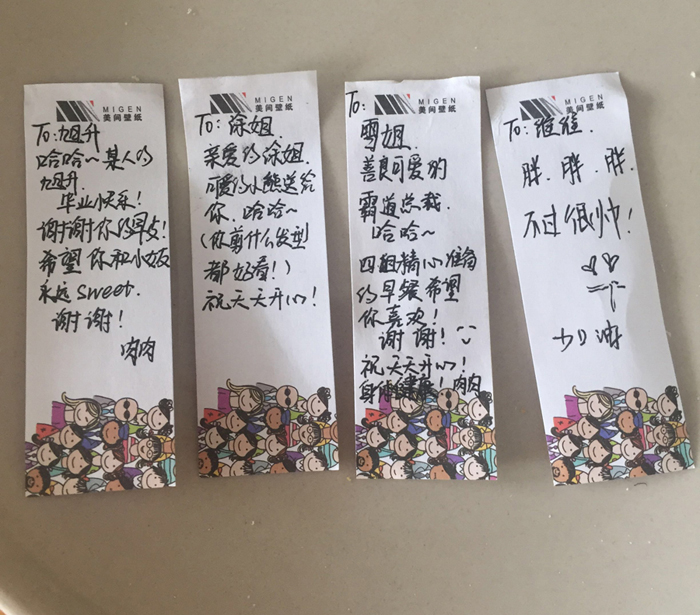 MIGEN
美间壁纸
To: 旭升
哈哈~某人的
旭升.
毕业快乐!
谢谢你的早点!
希望你和小姬
永远sweet.
谢谢!
肉肉
MIGEN
美间壁纸
To: 涂姐.
亲爱的涂姐.
可爱的小熊送给
你.哈哈~
(你剪什么发型
都好看!)
祝天天开心!
MIGEN
美间壁纸
To:
雪姐.
善良可爱的
霸道总裁.
哈哈~
四组精心准备
的早餐希望
你喜欢!
谢谢!
祝天天开心!
身体健康!肉肉
MIGEN
美间壁纸
To: 维维.
胖.胖.胖.
不过很帅!
加油